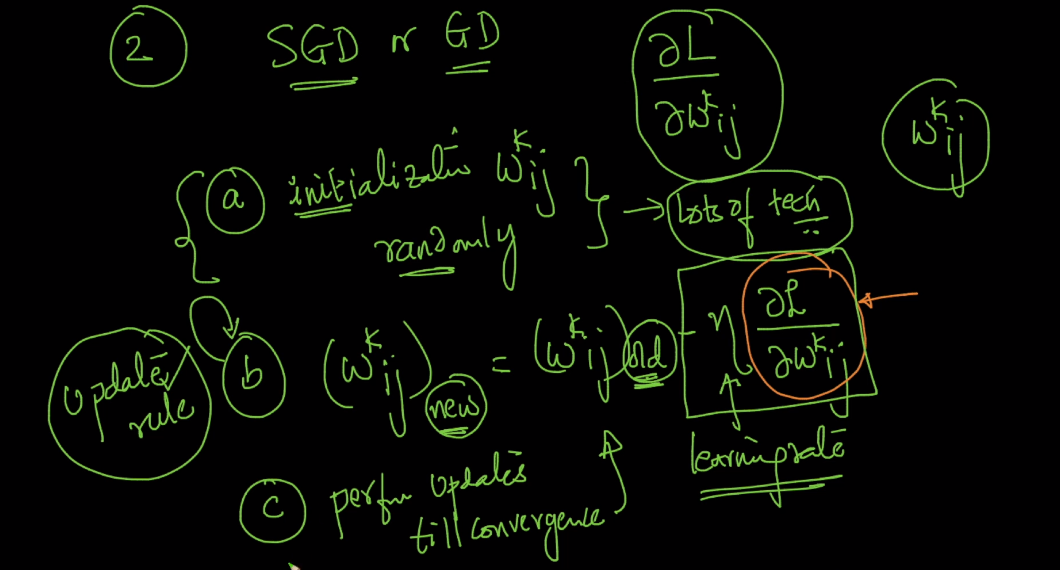 2 SGD or GD
∂L/∂w^k_ij
w^k_ij
a initialization w^k_ij
randomly
→ lots of tech
update rule
b (w^k_ij)new = (w^k_ij)old - η ∂L/∂w^k_ij
learning rate
c perform updates
till convergence